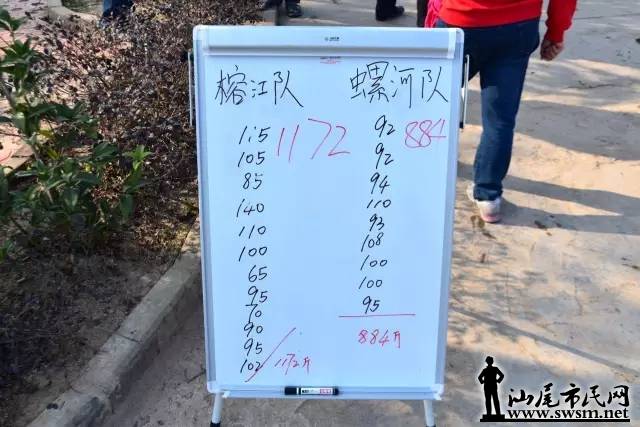 榕江队
115
105
85
140
110
100
65
95
70
90
95
102
1172
1172斤
螺河队
92
92
94
110
93
108
100
100
95
884
884斤
汕尾市民网
www.swsm.net